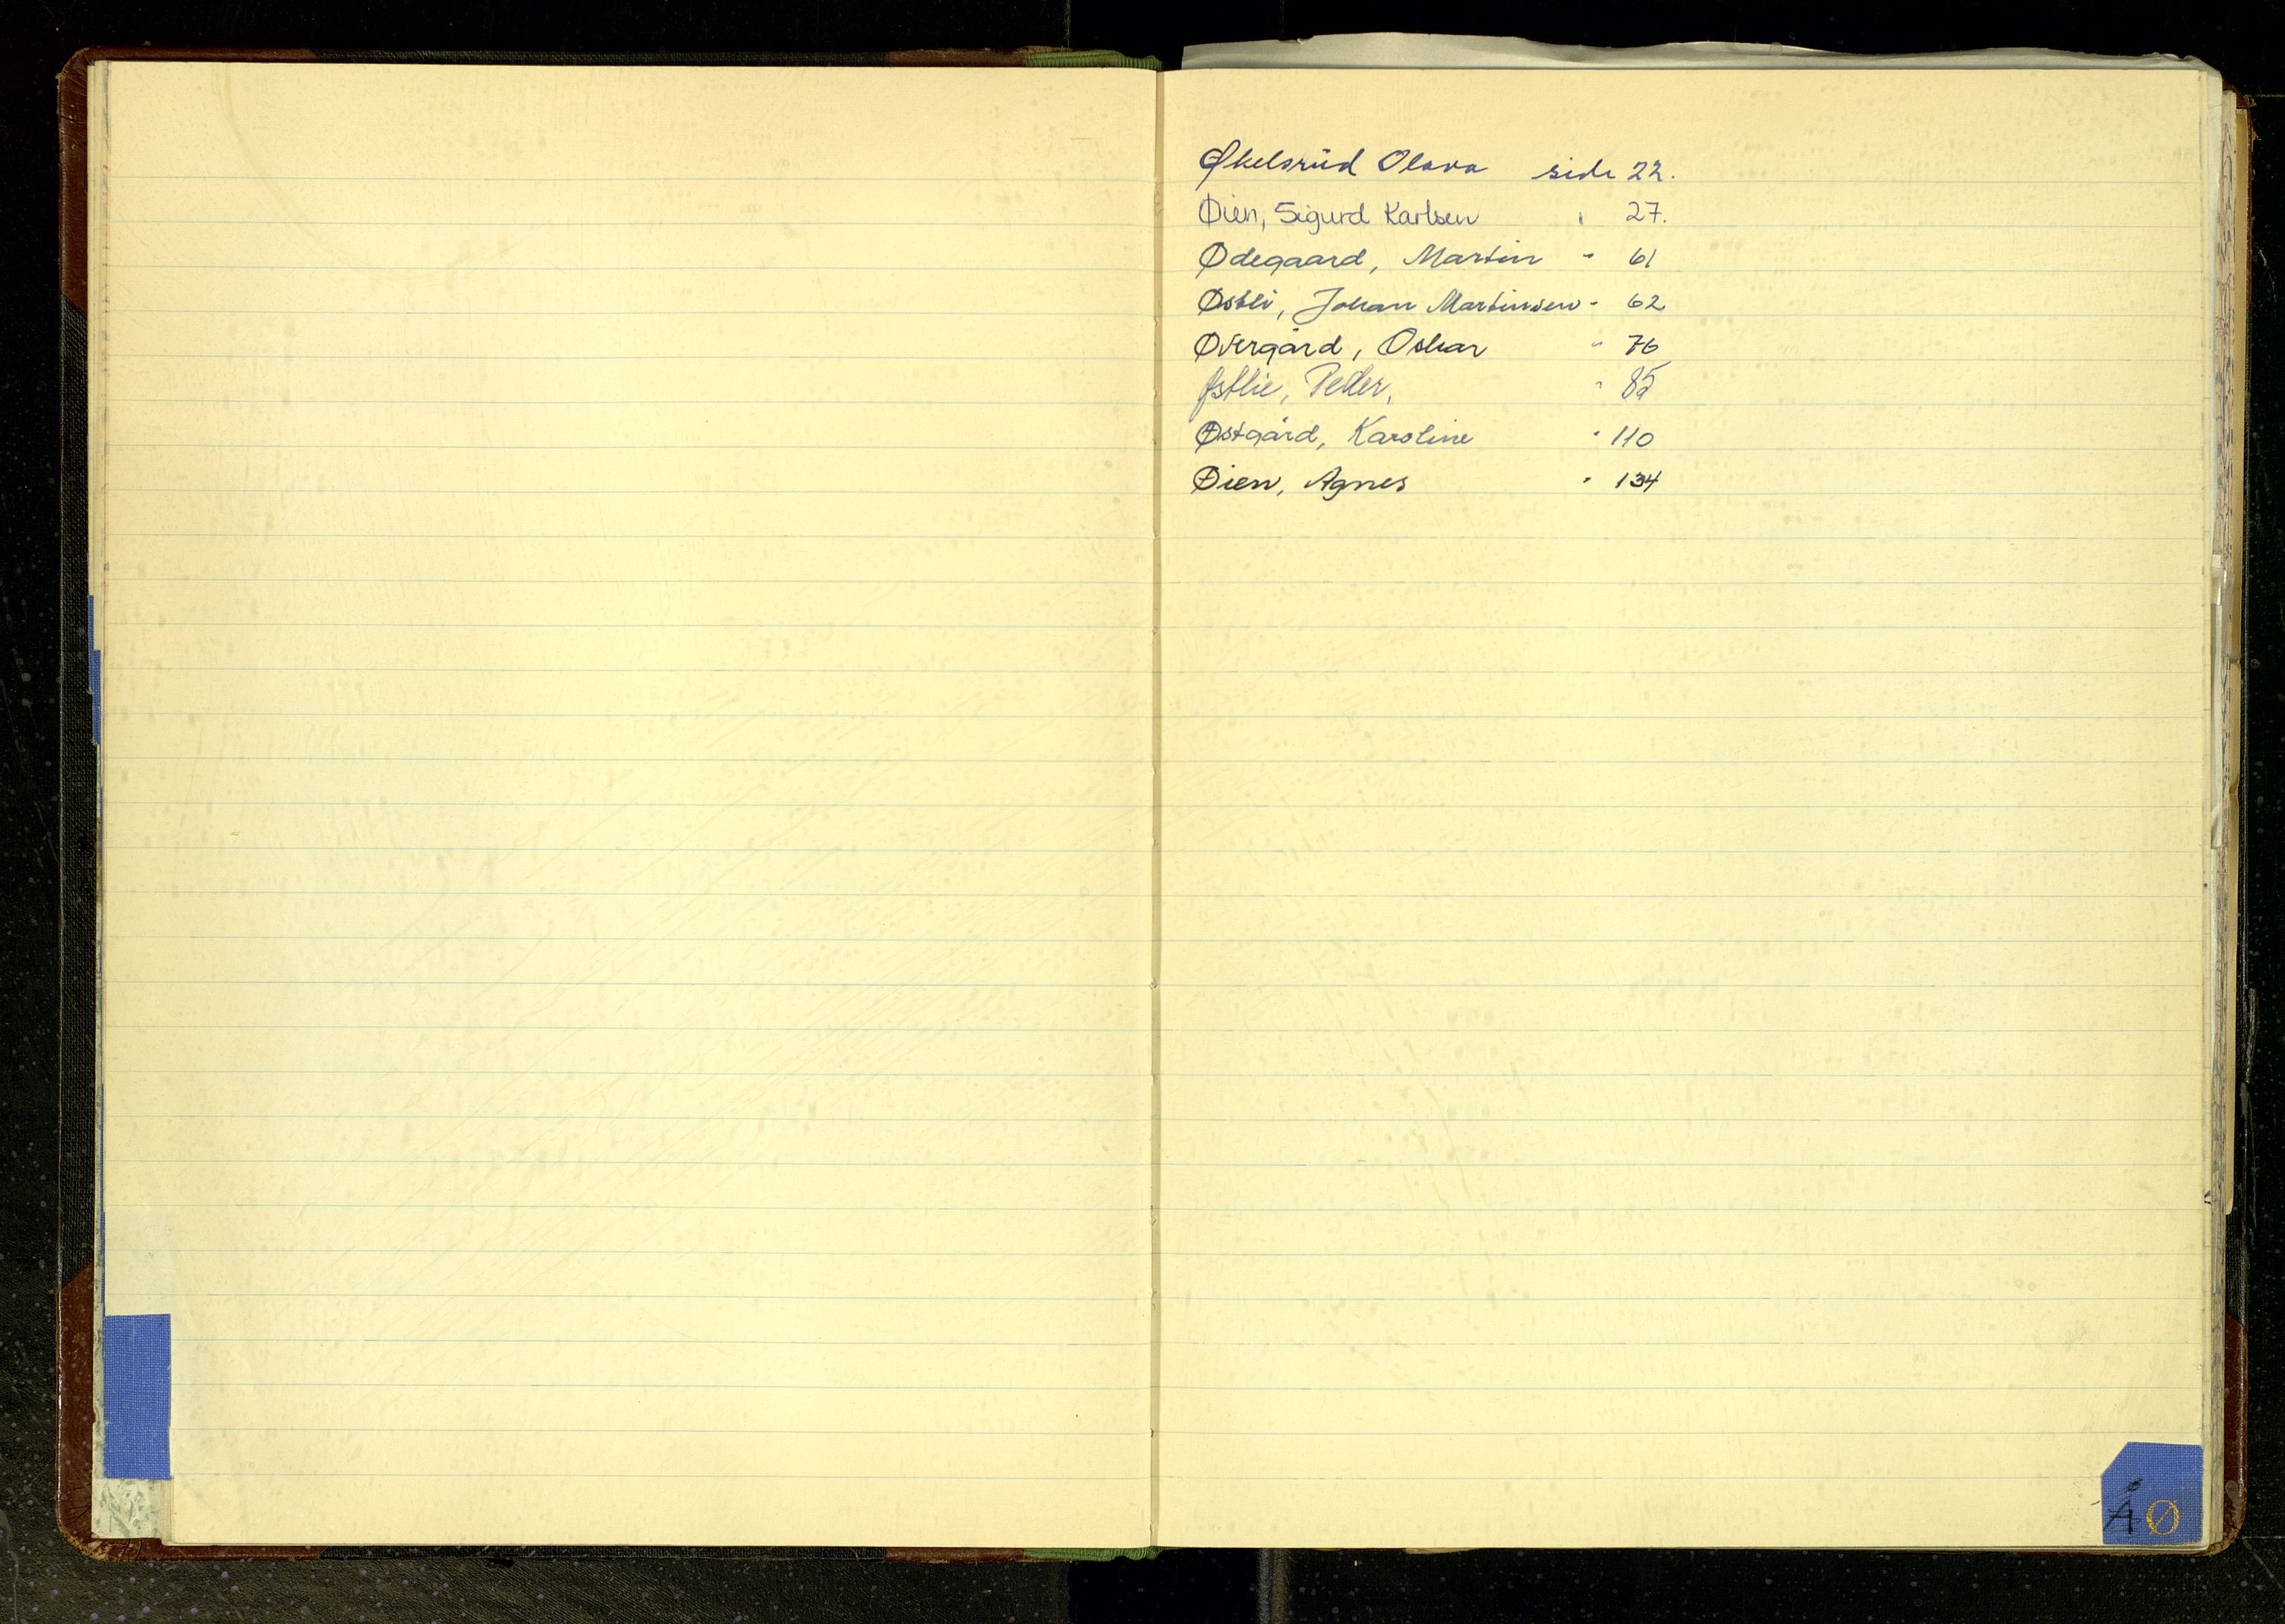 Økelsrud Olava side 22.
Øien, Sigurd Karlsen " 27.
Ødegaard, Martin " 61
Østli, Johan Martinsen " 62
Øvergård, Oskar " 76
Østlie, Petter, " 85
Østgård, Karoline " 110
Øien, Agnes " 134
Å Ø